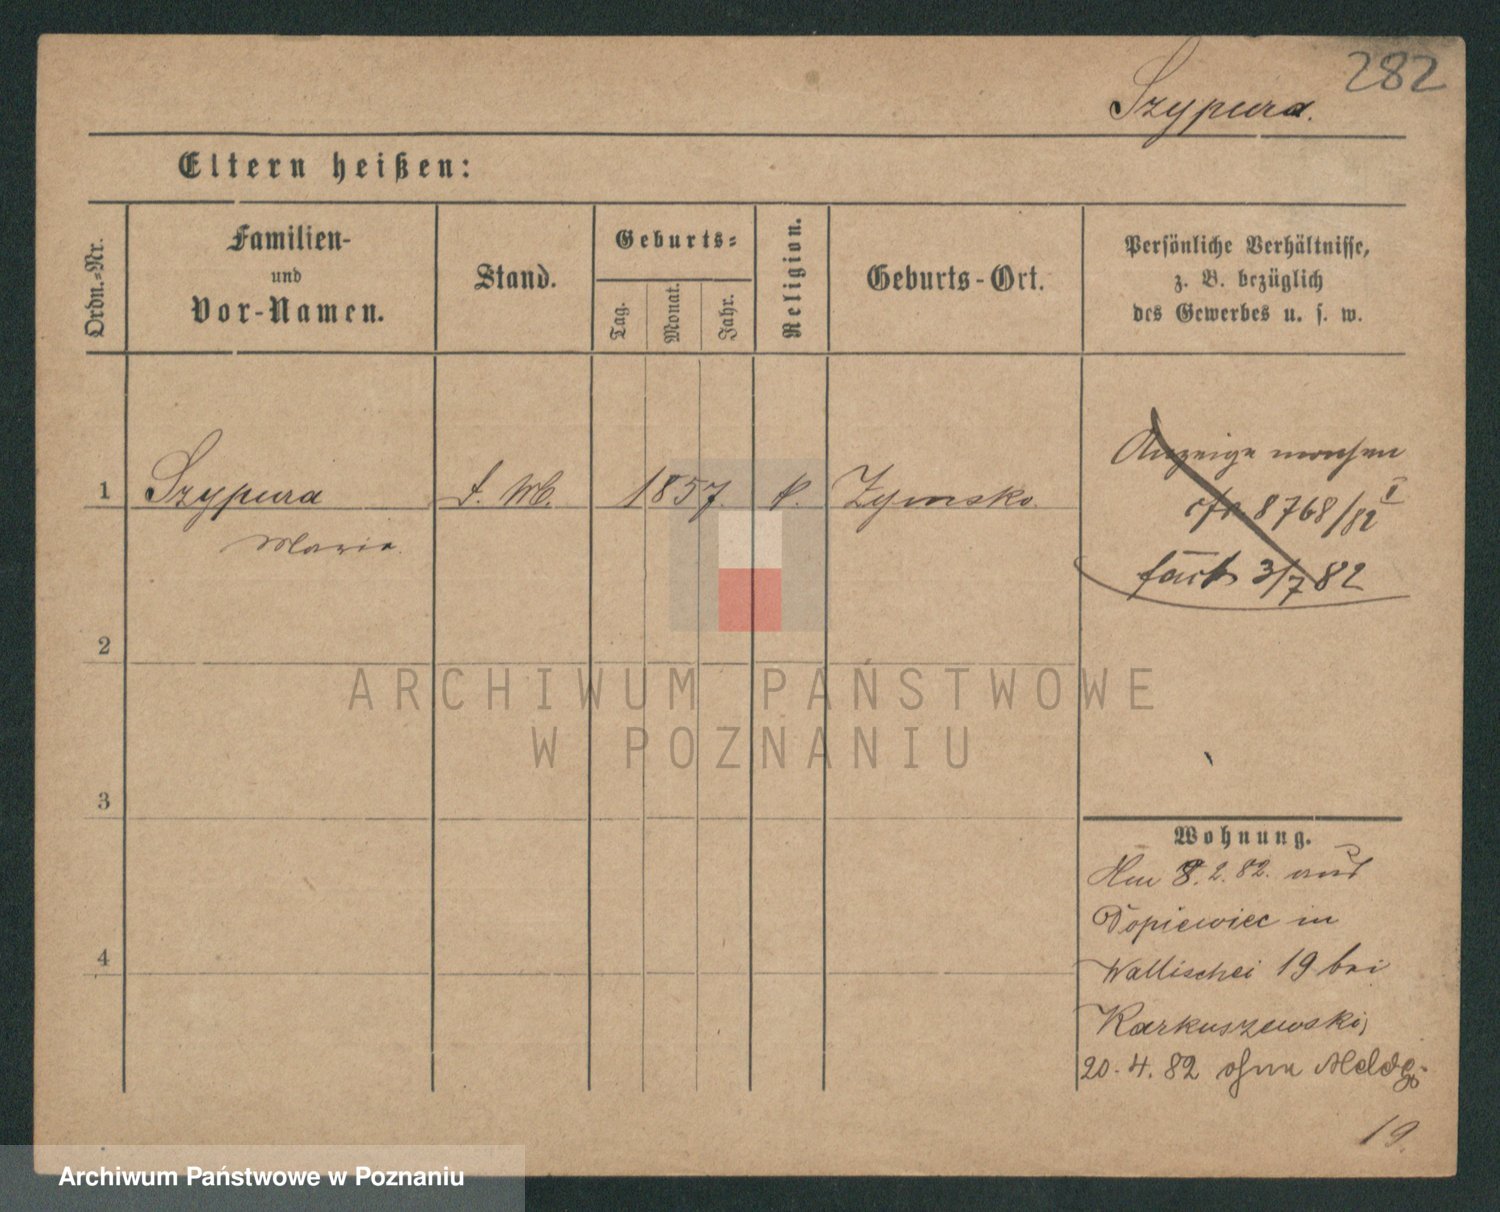 282
Szypura.
Eltern heißen:
Ordn.-Nr.
Familien-
und
Vor-Namen.
Stand.
Geburts-
Tag.
Monat.
Jahr.
Religion.
Geburts-Ort.
Persönliche Verhältnisse,
z. B. bezüglich
des Gewerbes u. s. w.
1 Szypura
Maria.
1857. k. Zymsko.
Anzeige
8768/82 I
3/7 82
2
3
4
Wohnung.
8.2.82. aus
Dopiewiec in
Wallischei 19 bei
Karkuszewski,
20.4.82 ohne Meldg.
19.
ARCHIWUM PAŃSTWOWE
W POZNANIU
Archiwum Państwowe w Poznaniu